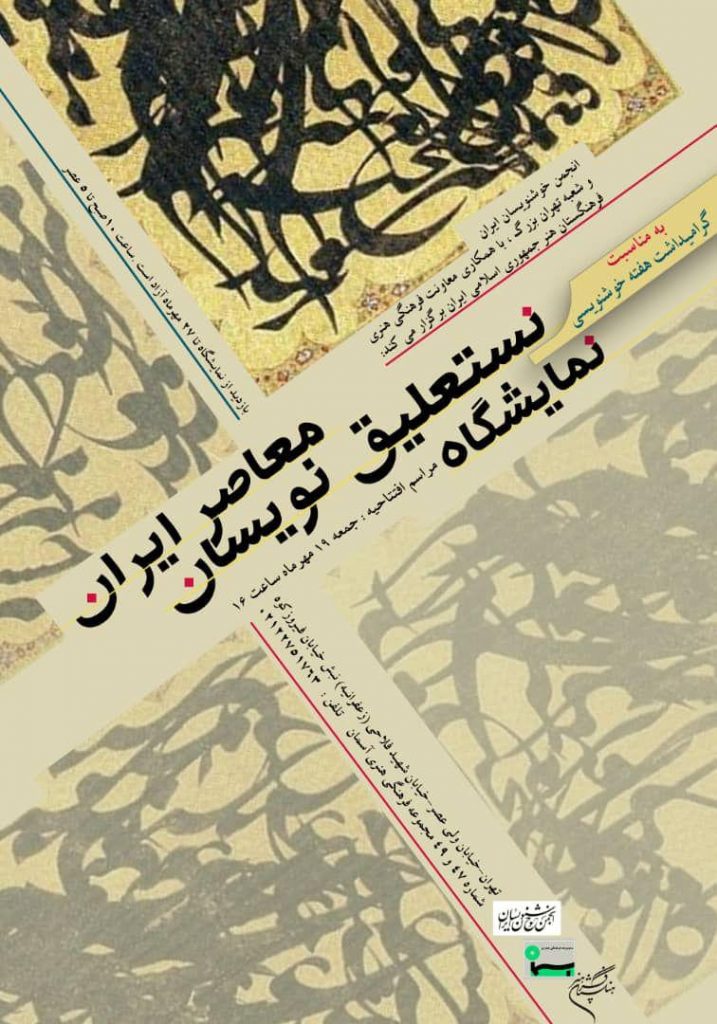 انجمن خوشنویسان ایران
و شعبه تهران بزرگ، با همکاری معاونت فرهنگی هنری
فرهنگستان هنر جمهوری اسلامی ایران برگزار می کند:
به مناسبت
گرامیداشت هفته خوشنویسی
نمایشگاه
نستعلیق نویسان
معاصر ایران
مراسم افتتاحیه : جمعه ۱۹ مهرماه ساعت ۱۶
بازدید از نمایشگاه تا ۲۷ مهرماه آزاد است. ساعت ۱۰ صبح تا ۵ عصر
تهران-خیابان ولی عصر-خیابان شهید فلاحی (زعفرانیه) نبش خیابان فیروزکوه
شماره ۴۷ و ۴۹ مجموعه فرهنگی هنری آسمان تلفن : ۰۲۱۲۲۷۵۱۷۹۳
انجمن خوشنویسان ایران
فرهنگستان هنر